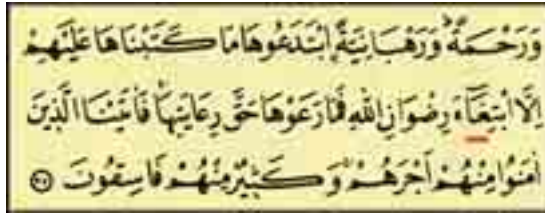 وَرَحْمَةً وَرَهْبَانِيَّةً ابْتَدَعُوهَا مَا كَتَبْنَاهَا عَلَيْهِمْ
اِلَّا ابْتِغَٓاءَ رِضْوَانِ اللّٰهِ فَمَا رَعَوْهَا حَقَّ رِعَايَتِهَا فَاٰتَيْنَا الَّذِينَ
اٰمَنُوا مِنْهُمْ اَجْرَهُمْ وَكَثِيرٌ مِنْهُمْ فَاسِقُونَ ٢٧